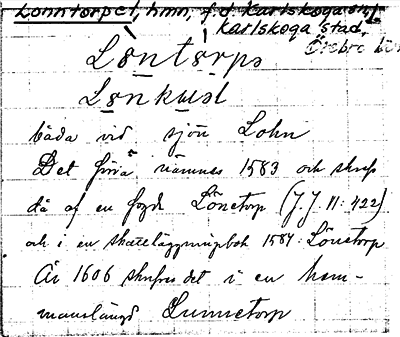 Lonntorpet, hmn, f.d. Karlskoga sn,
Karlskoga stad,
Örebro län
Løntørpə
Lønkuəl
båda vid sjön Lohn
Det förra nämnes 1583 och skrefs
då af en fogde Lönetorp (J.J 11:422)
och i en skatteläggningsbok 1587: Lönetorp
År 1606 skrefves det i en hem-
manslängd Lunnetorp